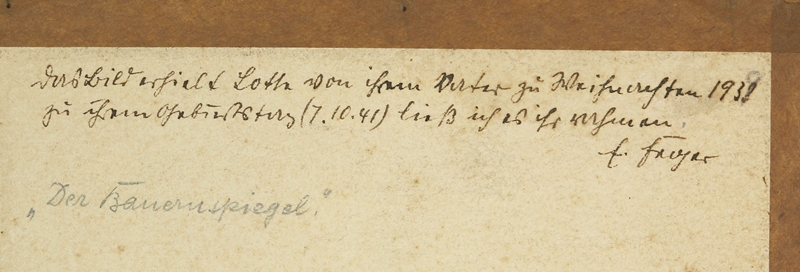 Das Bild erhielt Lotte von ihrem Vater zu Weihnachten 1938
zu ihrem Geburtstag (7.10.41) ließ ich es ihr rahmen.
E.
„Der Bauernspiegel."